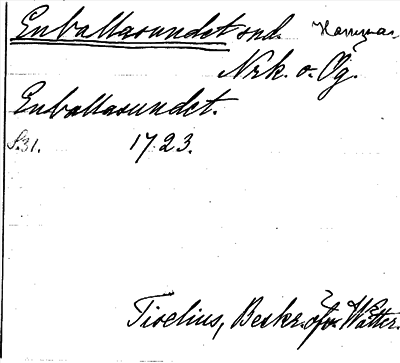 Enballasundet snd.
Nrk. o. Ög.
Enballasundet.
S. 31. 1723.
Tiselius, Beskr. öfv. Wätter.